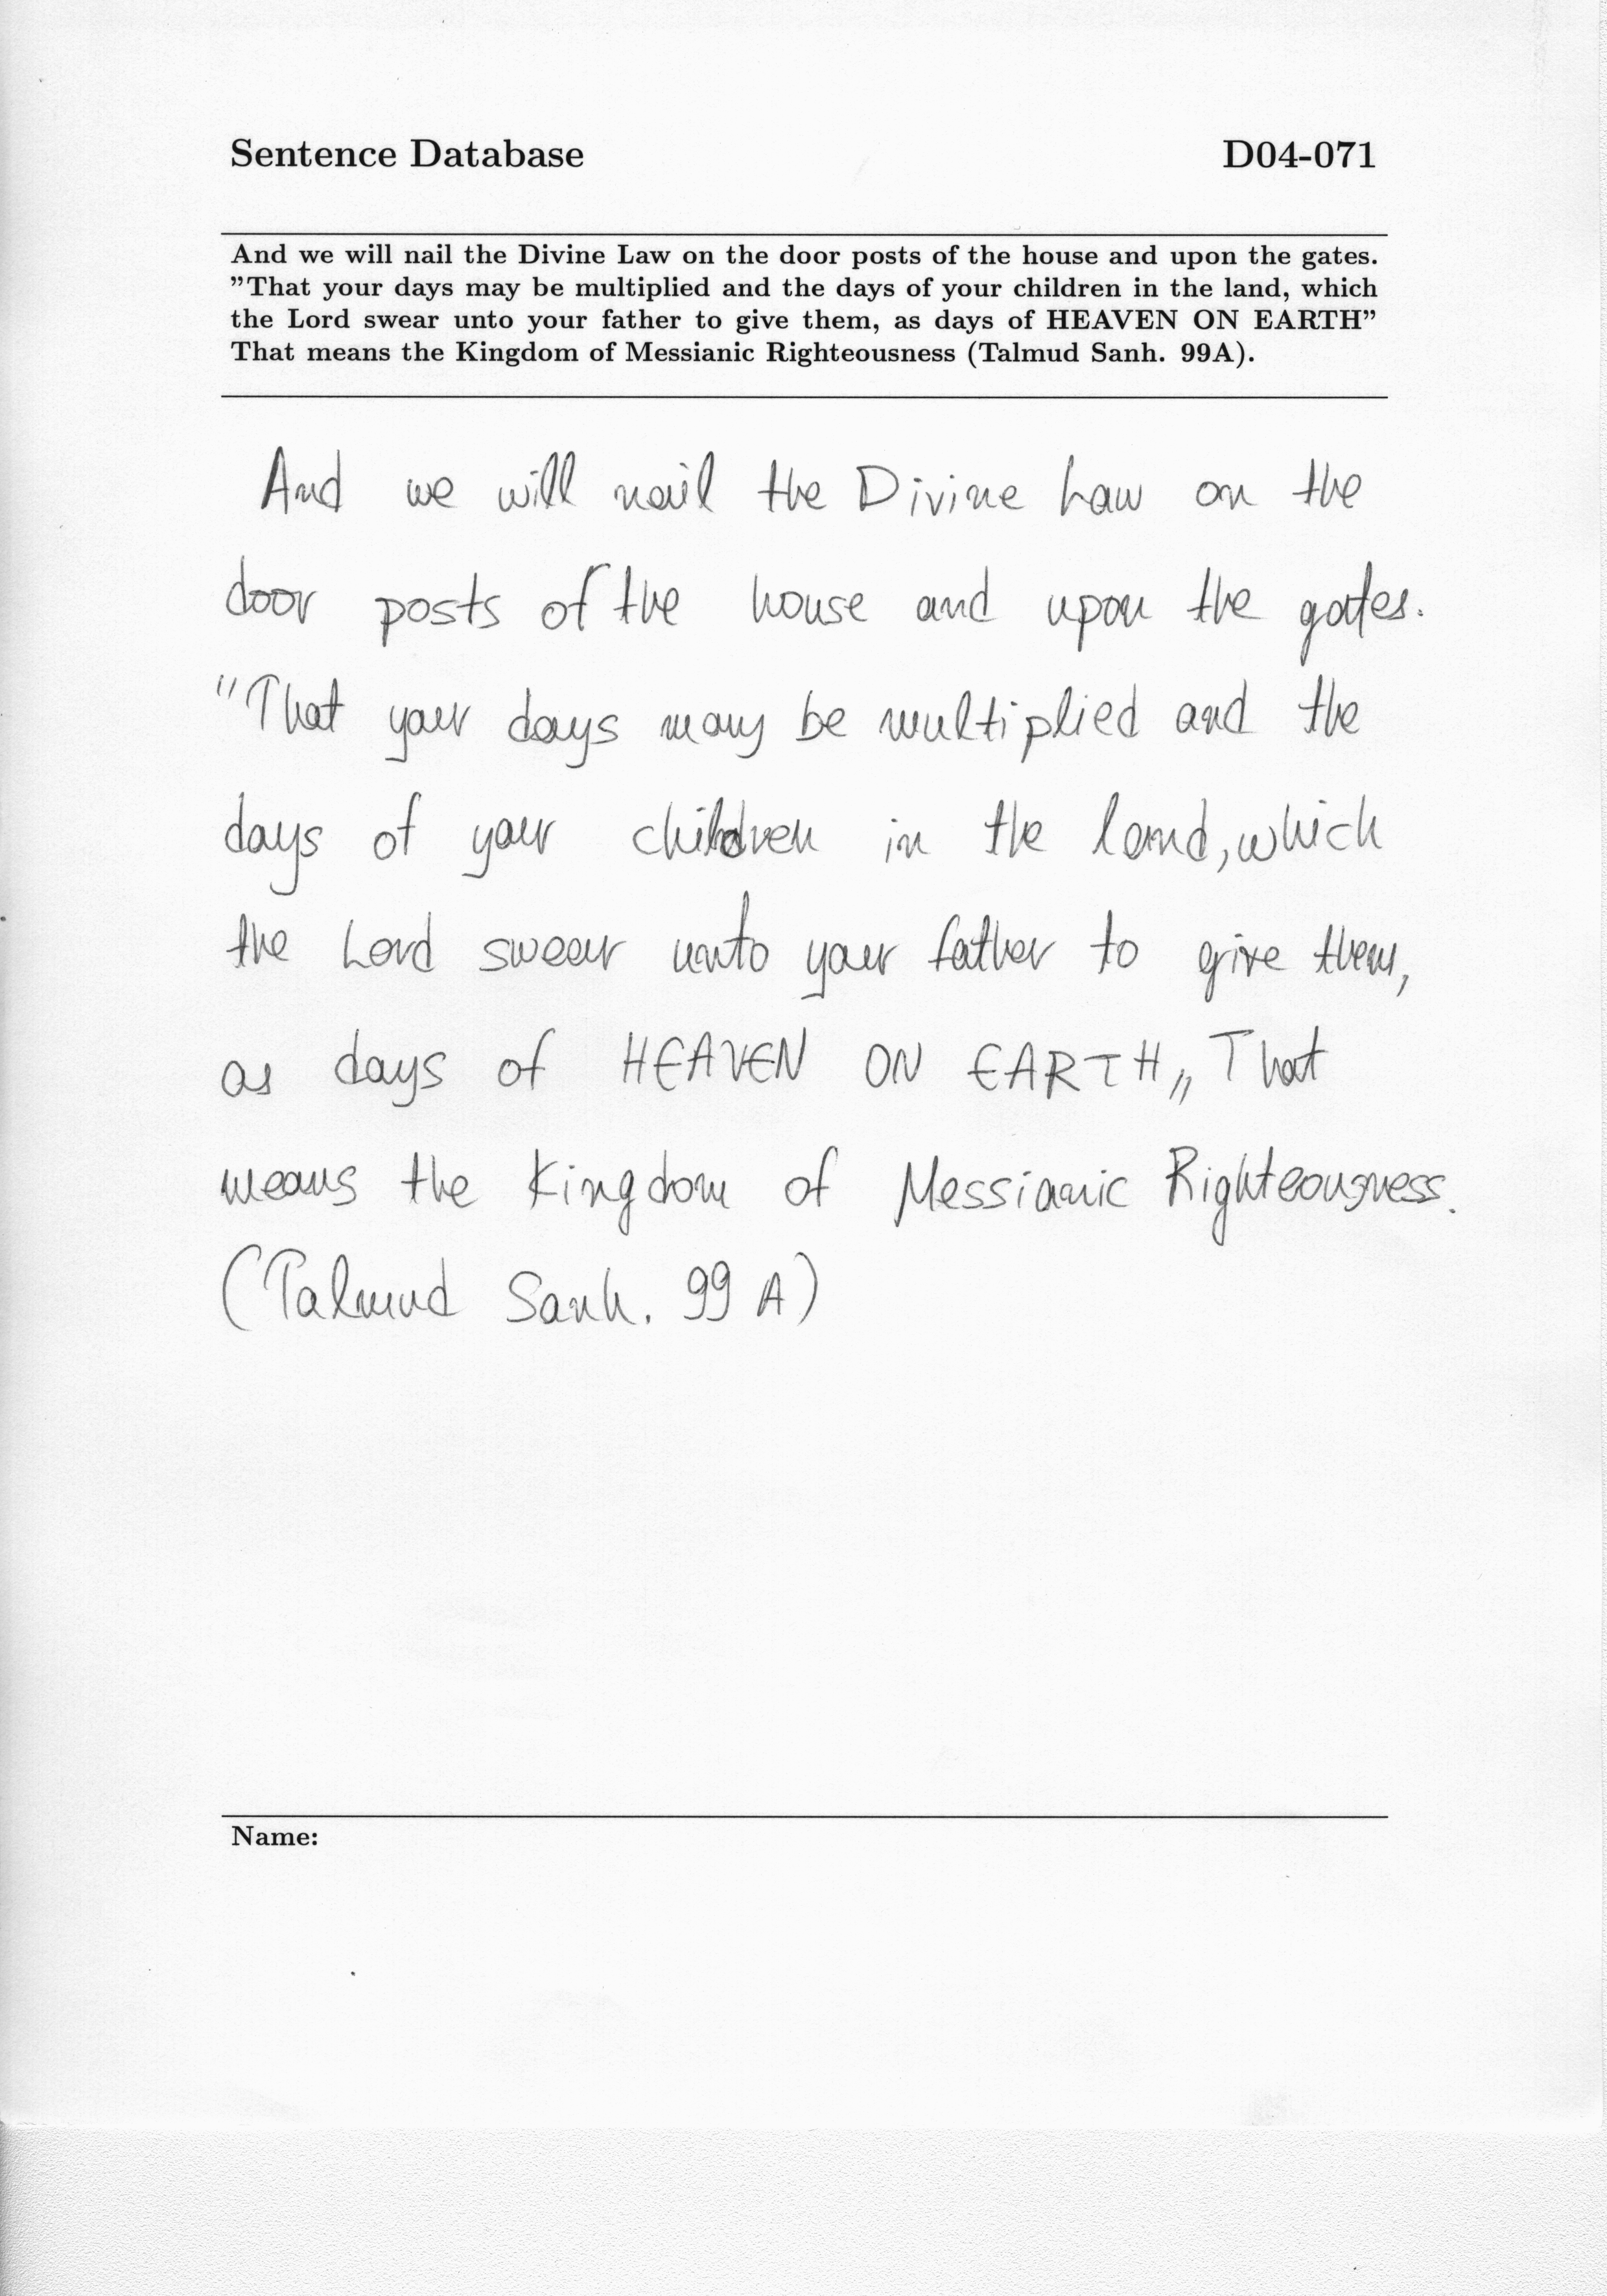 Sentence Database D04-071
And we will nail the Divine Law on the door posts of the house and upon the gates.
”That your days may be multiplied and the days of your children in the land, which
the Lord swear unto your father to give them, as days of HEAVEN ON EARTH”
That means the Kingdom of Messianic Righteousness (Talmud Sanh. 99A).
And we will nail the Divine Law on the
door posts of the house and upon the gates.
"That your days may be multiplied and the
days of your children in the land, which
the Lord swear unto your father to give them,
as days of HEAVEN ON EARTH„ That
means the Kingdom of Messianic Righteousness.
(Talmud Sanh. 99 A)
Name: